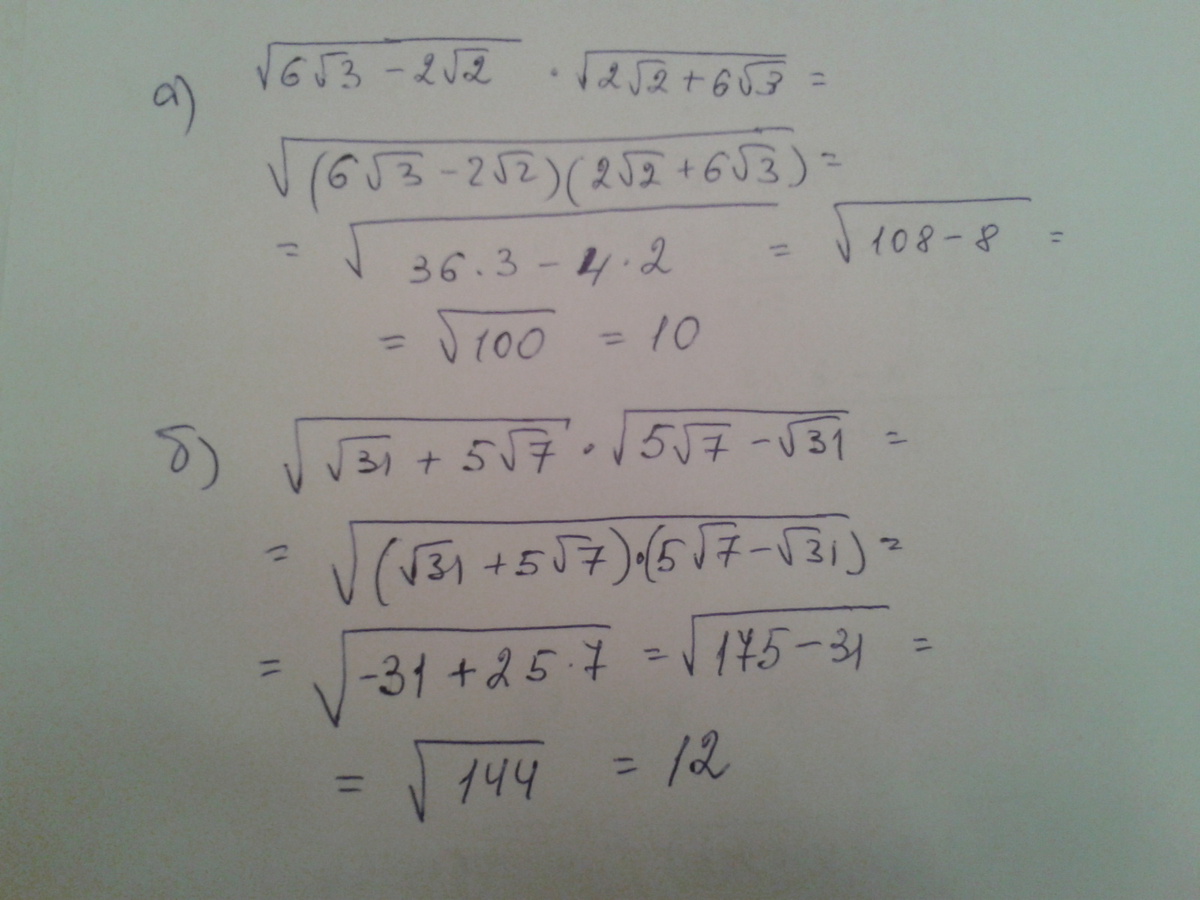 а) √(6√3 - 2√2) · √(2√2 + 6√3) =
√((6√3 - 2√2)(2√2 + 6√3)) =
= √(36 · 3 - 4 · 2) = √(108 - 8) =
= √100 = 10
б) √(√31 + 5√7) · √(5√7 - √31) =
= √((√31 + 5√7) · (5√7 - √31)) =
= √(-31 + 25 · 7) = √(175 - 31) =
= √144 = 12